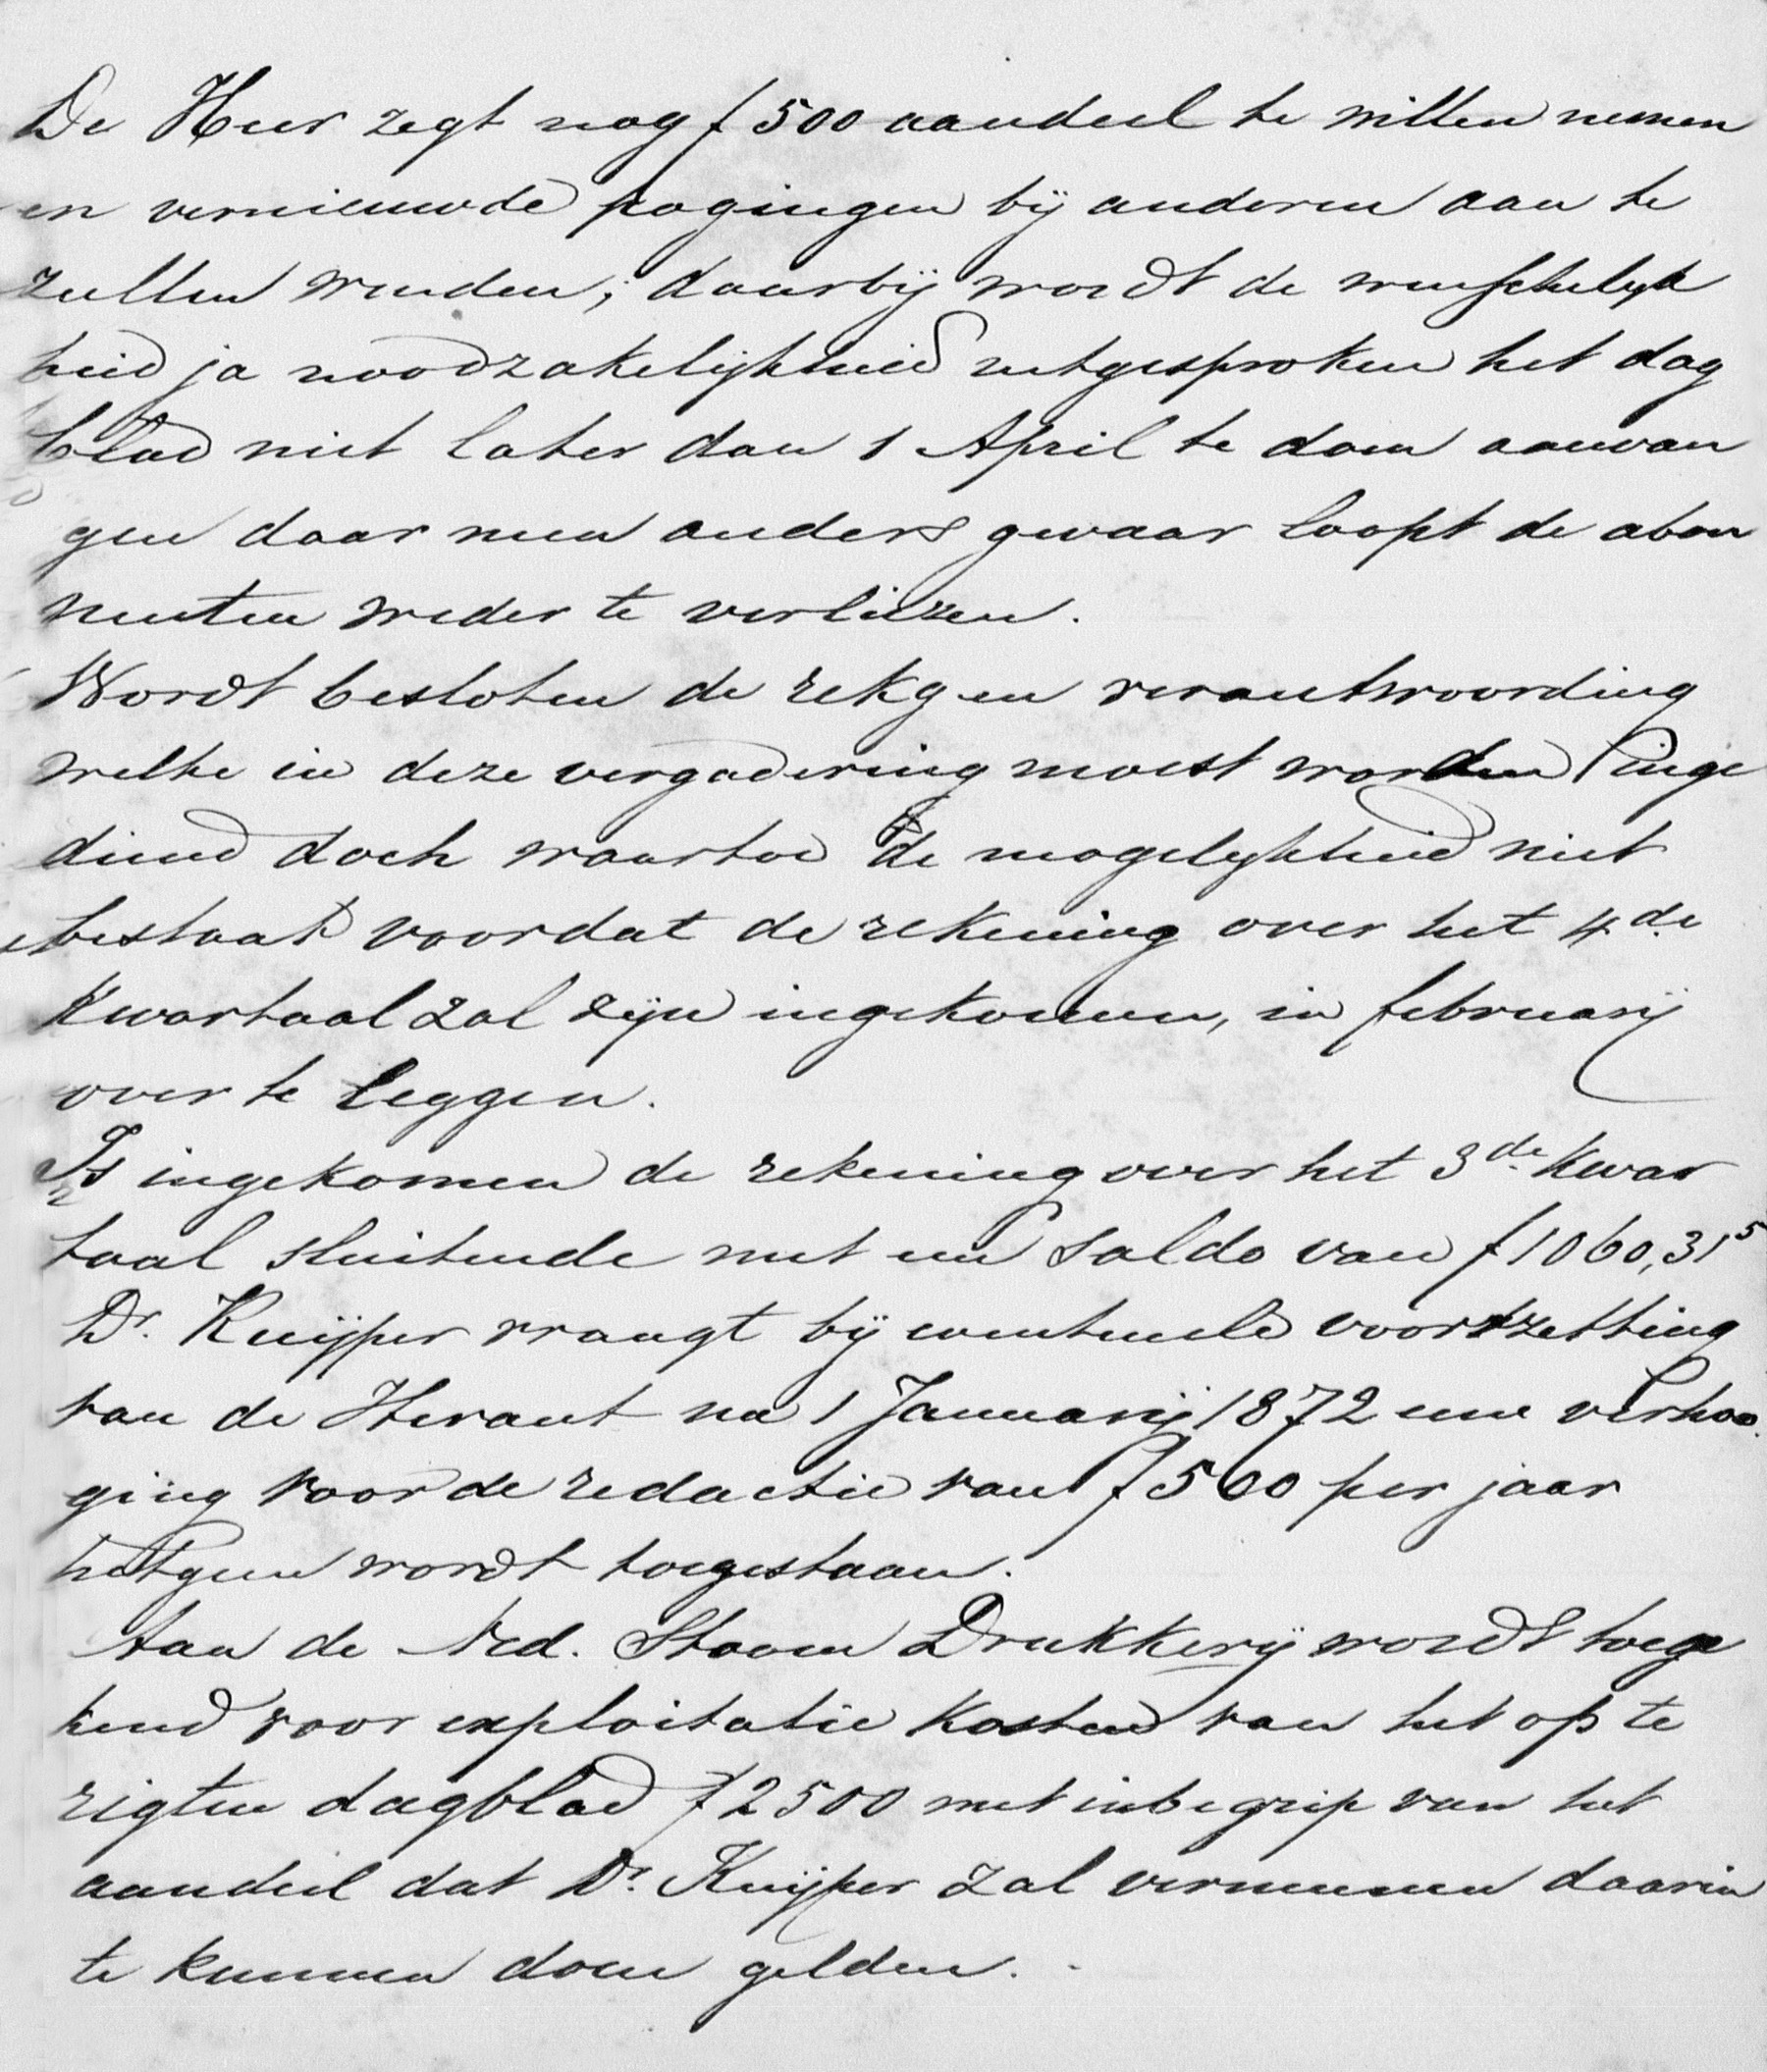 De Heer zegt nog f 500 aandeel te willen nemen
en vernieuwde pogingen bij anderen aan te
zullen wenden; daarbij wordt de wenschelijk
heid ja noodzakelijkheid uitgesproken het dag
blad niet later dan 1 April te doen aanvan
gen daar men anders gevaar loopt de abon
nenten weder te verliezen.
Wordt besloten de rekg en verantwoording
welke in deze vergadering moest worden inge
diend doch waartoe de mogelijkheid niet
bestaat voordat de rekening over het 4de
Kwartaal zal zijn ingekomen, in februarij
over te leggen.
Is ingekomen de rekening over het 3de Kwar
taal sluitende met een saldo van f 1060,31⁵
Dr. Kuijper vraagt bij eventueele voortzetting
van de Heraut na 1 Januarij 1872 eene verhoo
ging voor de redactie van f 500 per jaar
hetgeen wordt toegestaan.
Aan de Ned. Stoom Drukkerij wordt toege
kend voor exploitatie kosten van het op te
rigten dagblad f 2500 met inbegrip van het
aandeel dat Dr. Kuijper zal vermeenen daarin
te kunnen doen gelden.